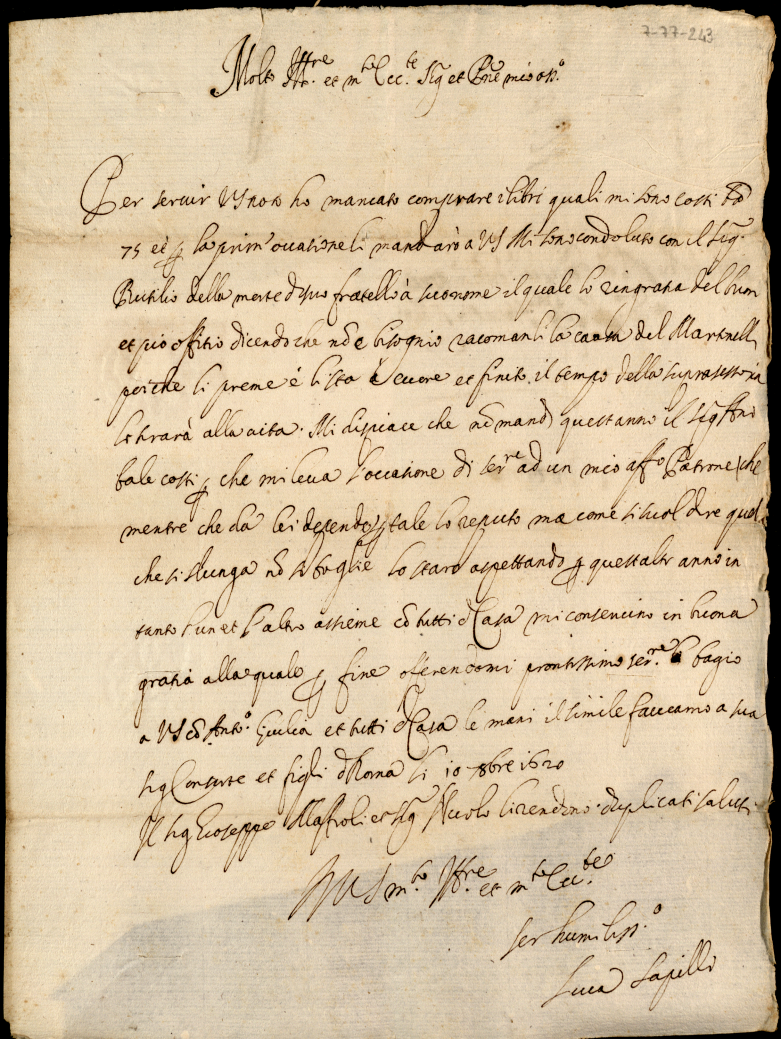 7-77-243
Molto Ill.re et m.to Ecc.te Sig et Prõe mio oss.o
Per servir VS non ho mancato comprare i libri quali mi sono costi
75 et ꝑ la prim'occasione li mandarò a VS Mi sono condoluto con il Sig.
Rutilio della morte d suo fratello à suo nome il quale lo ringratia del buon
et pio offitio dicendo che nõ è bisognio racomandi la causa del Martinelli
poiche li preme é li sta à cuore et finito il tempo della
lo tirarà alla Mi dispiace che nõ mandi quest'anno il Sig Ani
bale costi ꝑ che mi leva l'occasione di ser.re ad un mio aff.o Patrone che
mentre che da lei depende ꝑ tale lo reputo ma come si suol dire quel
che si slunga nõ si toglie lo starò aspettando ꝑ quest'altr anno in
tanto l'un et l'altro assieme cõ tutti d Casa mi conservino in buona
gratia alla quale ꝑ fine offerendomi prontissimo ser.re bagio
a VS cõ Ant.o Giulia et tutti d Casa le mani il simile facciamo a sua
sig Consorte et figli d Roma li 10 1620
Il sig Gioseppe et Sig Nicolo li rendono duplicati saluti
D VS m.to Ill.re et m.to Ecc.te
ser humiliss.o
Luca